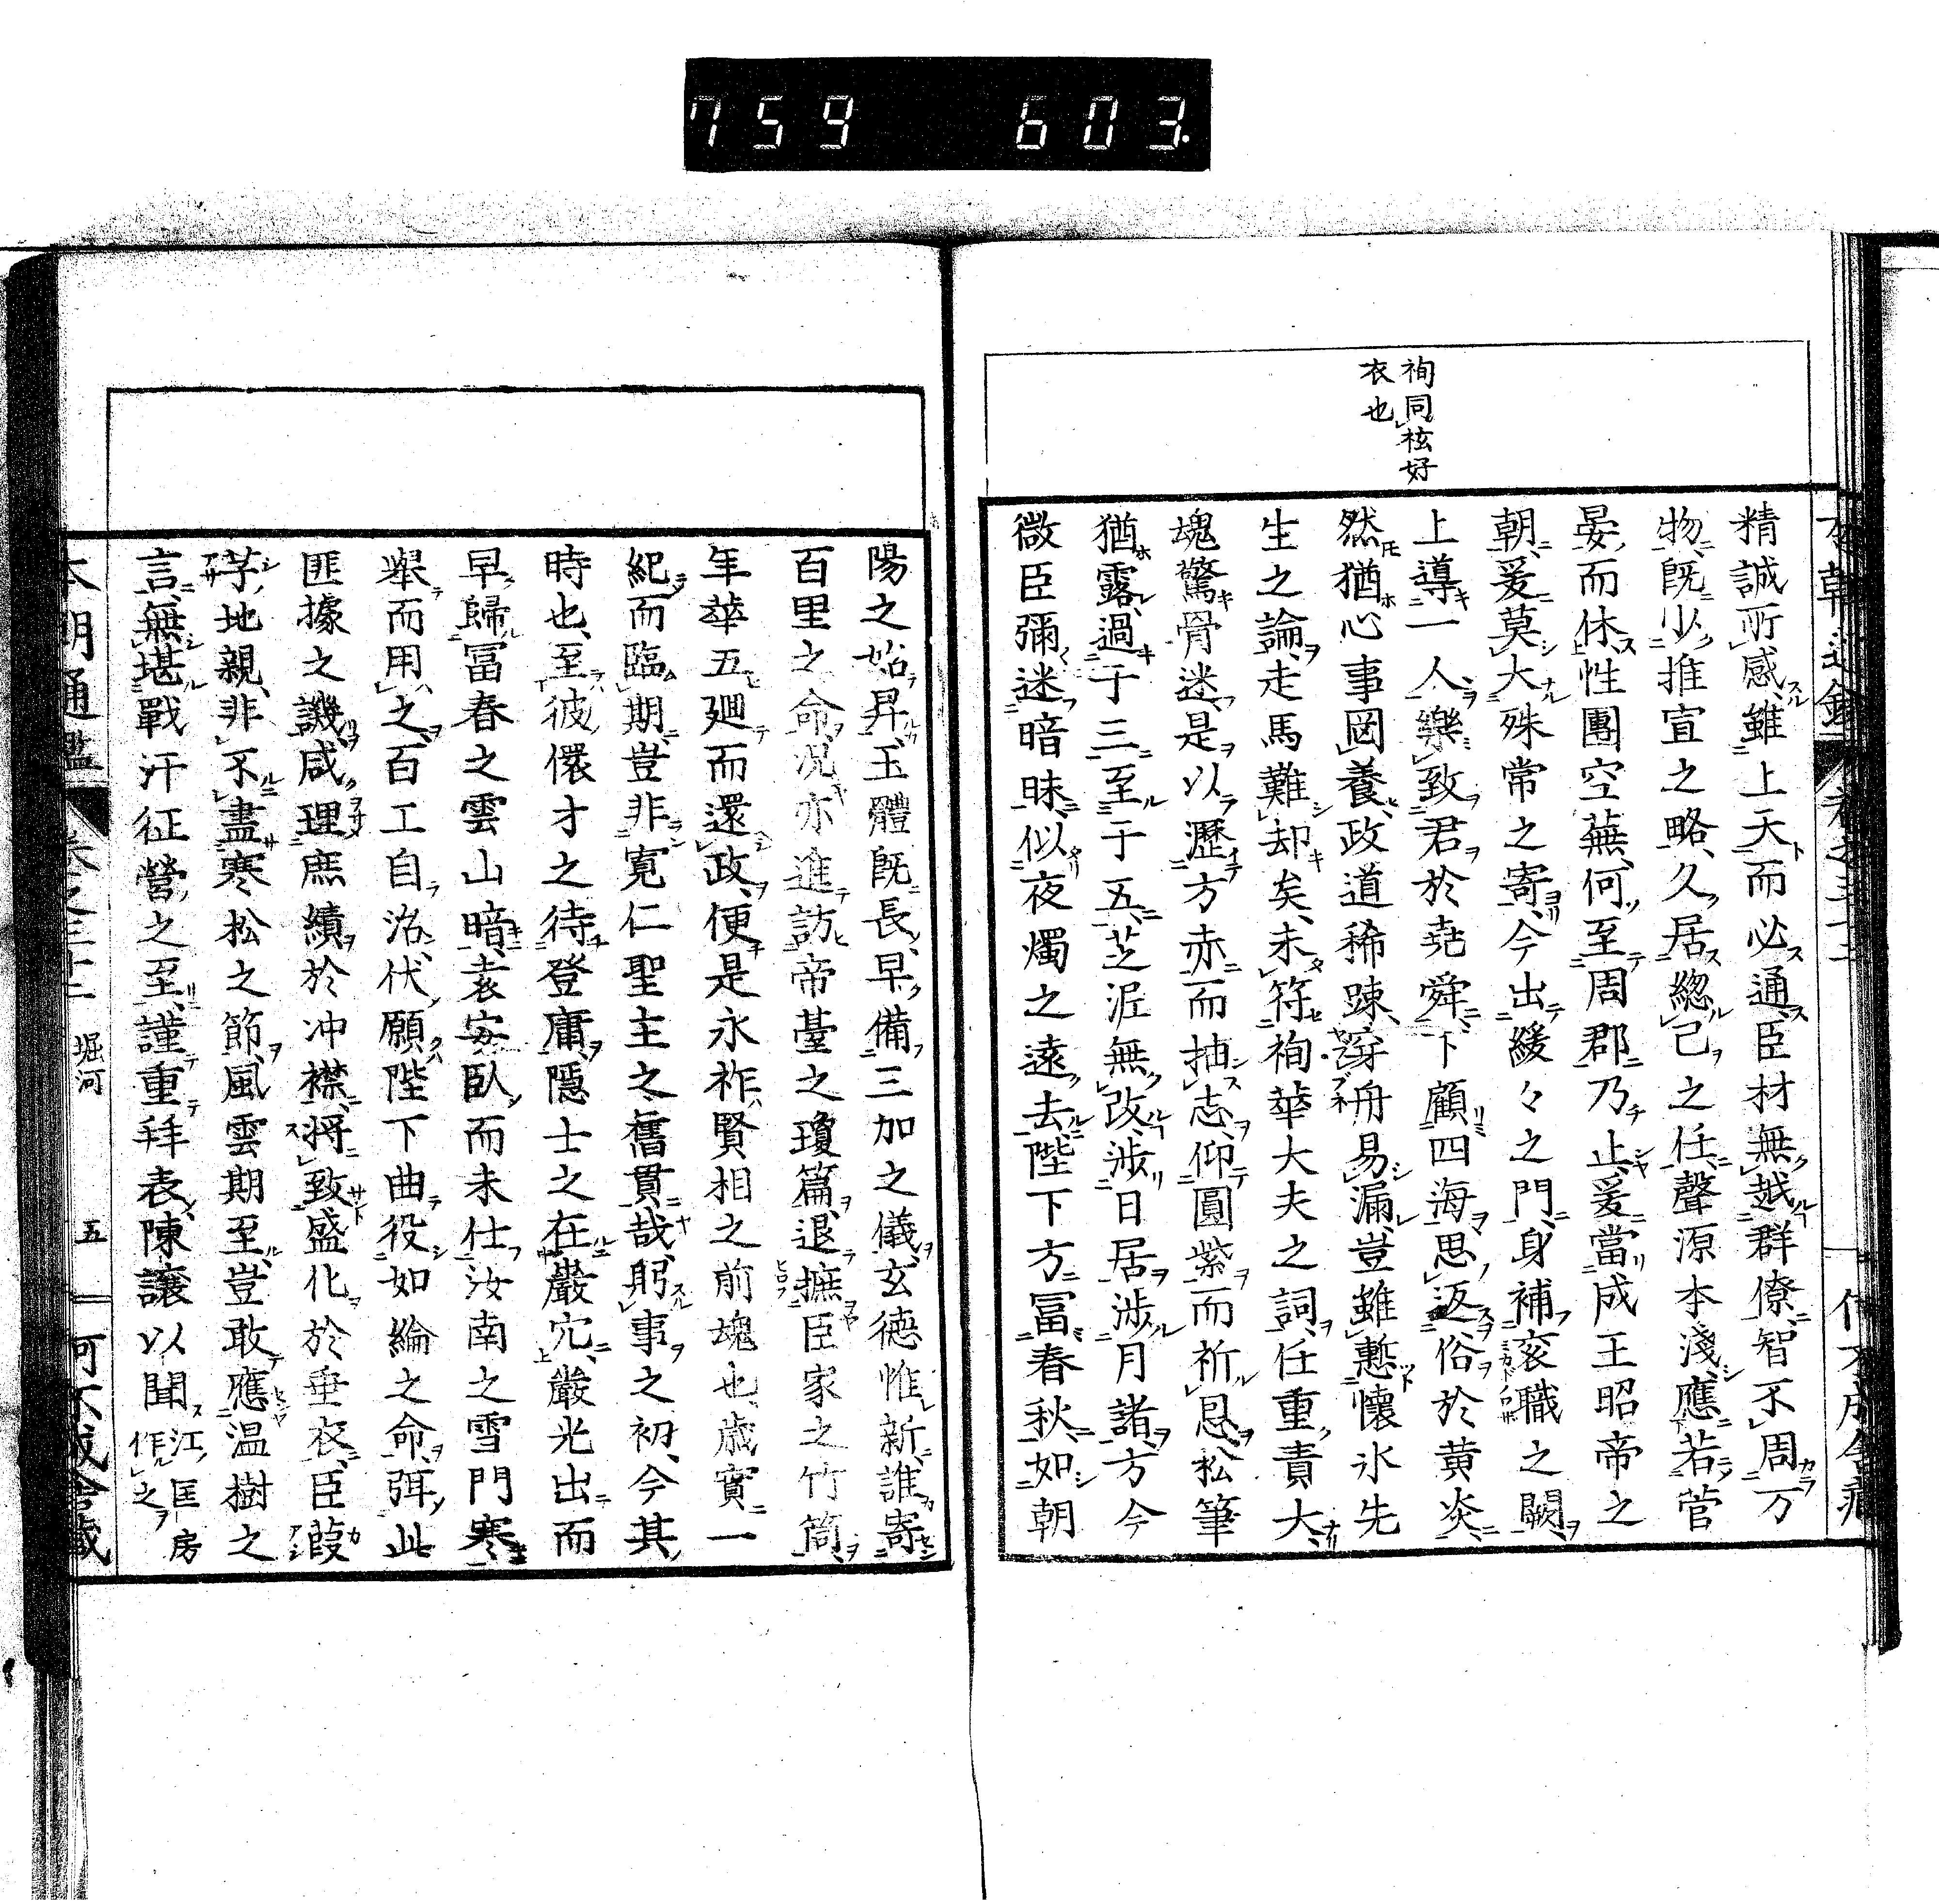 759 603.
祹同袨好
衣也
精誠所感雖上天而必通臣材無越群僚智不周万
物既少推宣之略久居總己之任聲源本淺應若菅
晏而休性團空蕪何至周郡乃止爰當成王昭帝之
朝爰莫大殊常之寄今出緩々之門身補衮職之闕
上導一人樂致君於堯舜下顧四海思返俗於黄炎
然猶心事罔養政道稀踈穿舟易漏豈雖慙懷氷先
生之論走馬難却矣未符祹華大夫之詞任重責大
魂驚骨迷是以瀝方赤而抽志仰圓紫而祈恩松筆
猶露過于三至于五芝泥無改渉日居渉月諸方今
微臣彌迷暗昧似夜燭之遠去陛下方冨春秋如朝
陽之始昇玉體既長早備三加之儀玄德惟新誰寄
百里之命况亦進訪帝臺之瓊篇退摭臣家之竹簡
年華五廻而還政便是永祚賢相之前魂也歳實一
紀而臨期豈非寛仁聖主之舊貫哉躬事之初今其
時也至彼儇才之待登庸隱士之在巖穴巖光出而
早歸冨春之雲山暗袁安臥而未仕汝南之雪門寒
舉而用之百工自治伏願陛下曲役如綸之命弭此
匪據之譏咸理庶績於冲襟將致盛化於垂衣臣葭
莩地親非不盡寒松之節風雲期至豈敢應温樹之
言無堪戰汗征營之至謹重拜表陳讓以聞江匡房作之
本朝通鑑 卷之三十二 堀河 五